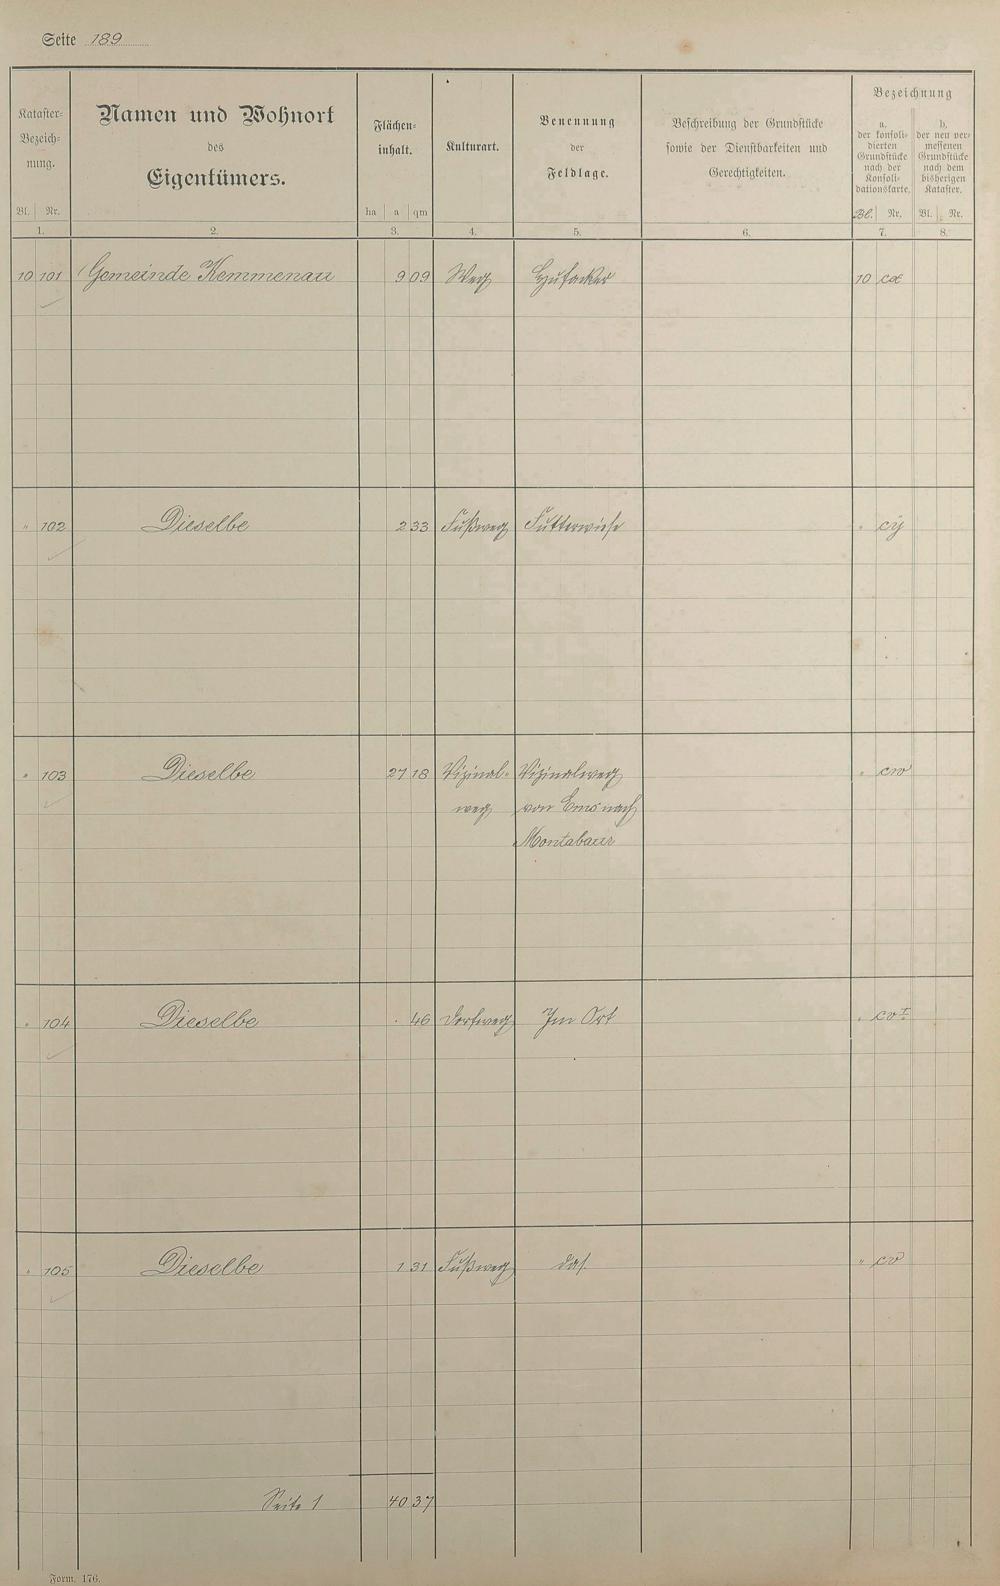 Seite 189
Kataster-Bezeich-nung.
Namen und Wohnort
des
Eigentümers.
Flächen-inhalt.
Kulturart.
Benennung
der
Feldlage.
Beschreibung der Grundstücke
sowie der Dienstbarkeiten und
Gerechtigkeiten.
Bezeichnung
a.
der konsoli-
dierten
Grundstücke
nach der
Konsoli-
dationskarte.
b.
der neu ver-
messenen
Grundstücke
nach dem
bisherigen
Kataster.
Bl. Nr. ha a qm Bl. Nr. Bl. Nr.
1. 2. 3. 4. 5. 6. 7. 8.
10 101 Gemeinde Kemmenau 9 09 Weg Hufacker 10 cx
" 102 Dieselbe 2 33 Fußweg Futterwiese " cy
" 103 Dieselbe 27 18 Vizinal- Vizinalweg " cw
weg von Ems nach
Montabaur
" 104 Dieselbe . 46 Dorfweg Im Ort " cv I
" 105 Dieselbe 1 31 Fußweg das. " cv
Seite 1 40 37
Form. 176.